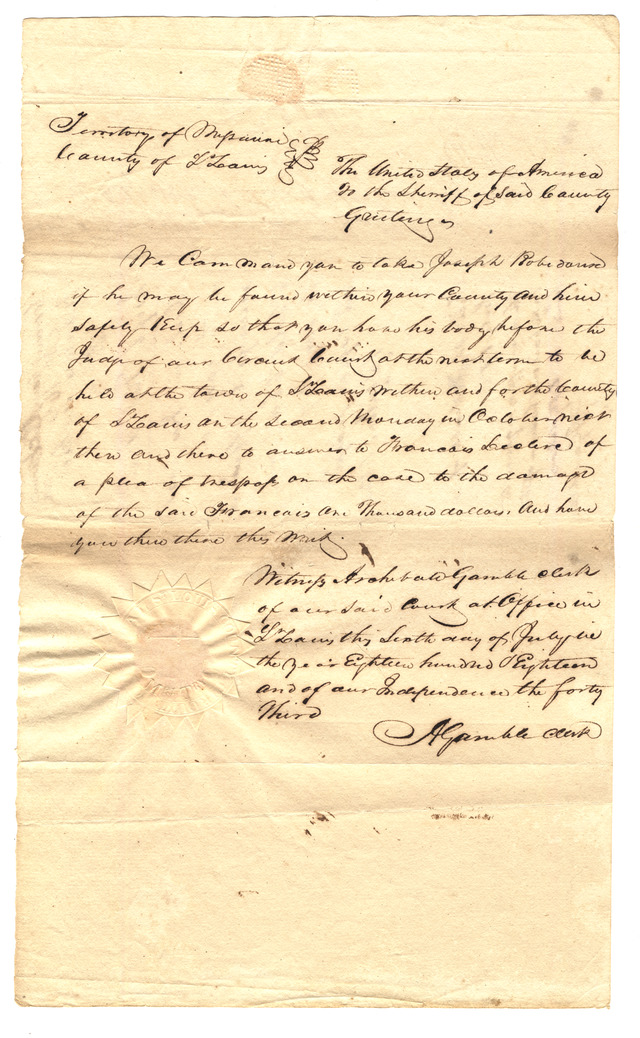 Territory of Missouri
County of St Louis
The United States of America
To the Sherriff of Said County
Greetings
We Command you to take Joseph Robidoux
if he may be found within your County and him
safely Keep so that you have his body before the
Judge of our Circuit Court at the next term to be
held at the town of St Louis within and for the County
of St Louis on the second Monday in October next
then and there to answer to Francois Leclerc of
a plea of trespass on the case to the damage
of the said Francois One Thousand dollars. And have
you then there this Writ.
Witness Archibald Gamble clerk
of our said Court at Office in
St Louis this Sixth day of July in
the year Eighteen hundred & Eighteen
and of our Independence the forty
Third
A Gamble clerk